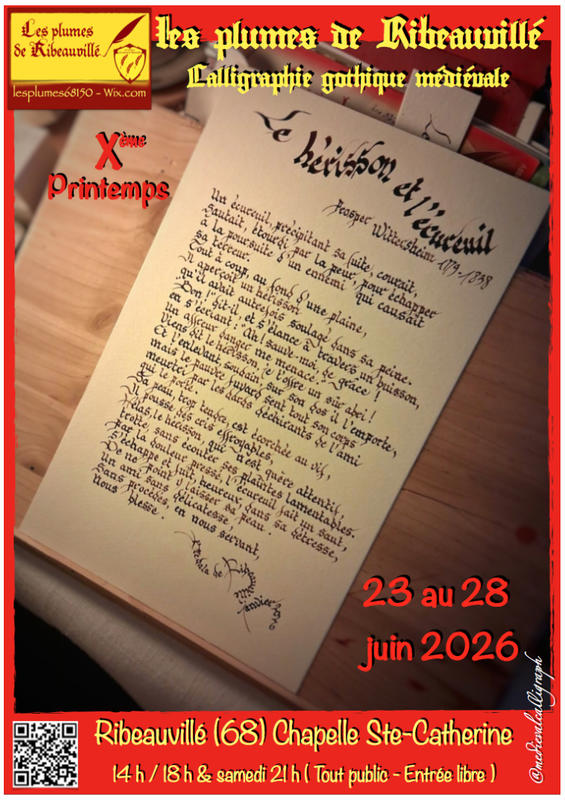 Les plumes
de Ribeauvillé
lesplumes68150 - Wix.com
les plumes de Ribeauvillé
Calligraphie gothique médiévale
Xème
Printemps
Le hérisson et l'écureuil
Prosper Wittersheim 1779-1838
Un écureuil, précipitant sa fuite, courait,
Sautait, étourdi par la peur, pour échapper
à la poursuite d'un ennemi qui causait
sa terreur.
Tout à coup, au fond d'une plaine,
Il aperçoit un hérisson
qu'il avait autrefois soulagé dans sa peine.
Bon! dit-il, et s'élance à travers un buisson,
en s'écriant: Ah! sauve-moi, de grâce!
Un affreux danger me menace.
Viens dit le hérisson, je t'offre un sûr abri!
Et l'enlevant soudain sur son dos il l'emporte,
mais le pauvre fuyard sent tout son corps
meurtri par les dards déchirants de l'ami
qui le porte.
Sa peau, trop tendre, est écorchée au vif,
Il pousse des cris effroyables,
Hélas, le hérisson, qui n'est guère attentif,
trotte, sans écouter ses plaintes lamentables.
Par la douleur pressé, l'écureuil fait un saut,
S'échappe et fuit heureux, dans sa détresse,
De ne point y laisser sa peau.
Un ami sans délicatesse,
Sans procédés, en nous servant,
Nous blesse.
de Ribeauvillé
23 au 28
juin 2026
@medievalcalligraph
Ribeauvillé (68) Chapelle Ste-Catherine
14 h / 18 h & samedi 21 h ( Tout public - Entrée libre )